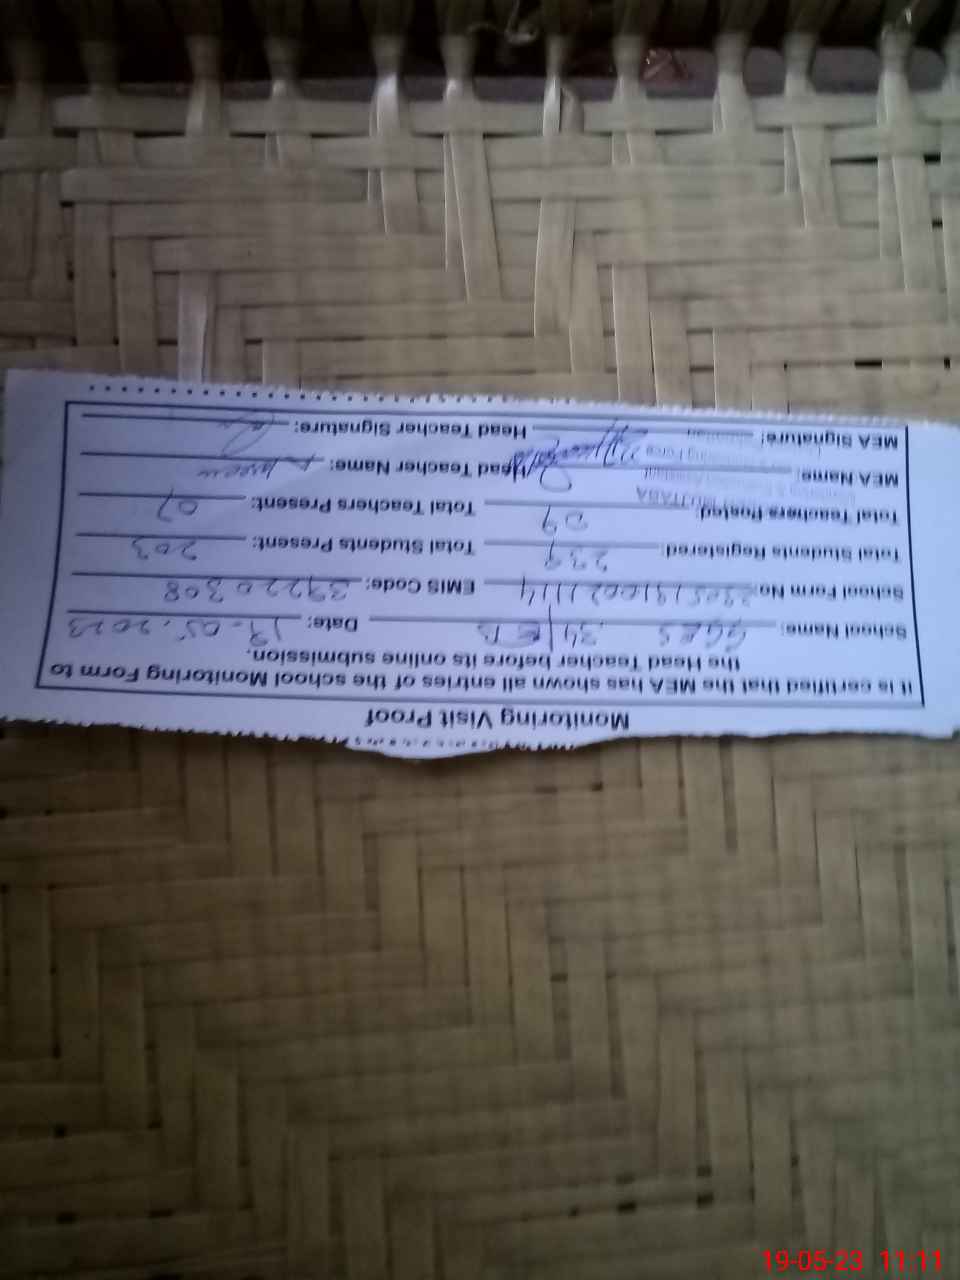 Monitoring Visit Proof
It is certified that the MEA has shown all entries of the school Monitoring Form to
the Head Teacher before its online submission.
School Name: GGES 34/EB Date: 19.05.2023
School Form No: EMIS Code: 39220308
Total Students Registered: 239 Total Students Present: 203
Total Teachers Posted: 09 Total Teachers Present: 07
MEA Name: MUJTABA Head Teacher Name:
MEA Signature: Head Teacher Signature:
19-05-23 11:11